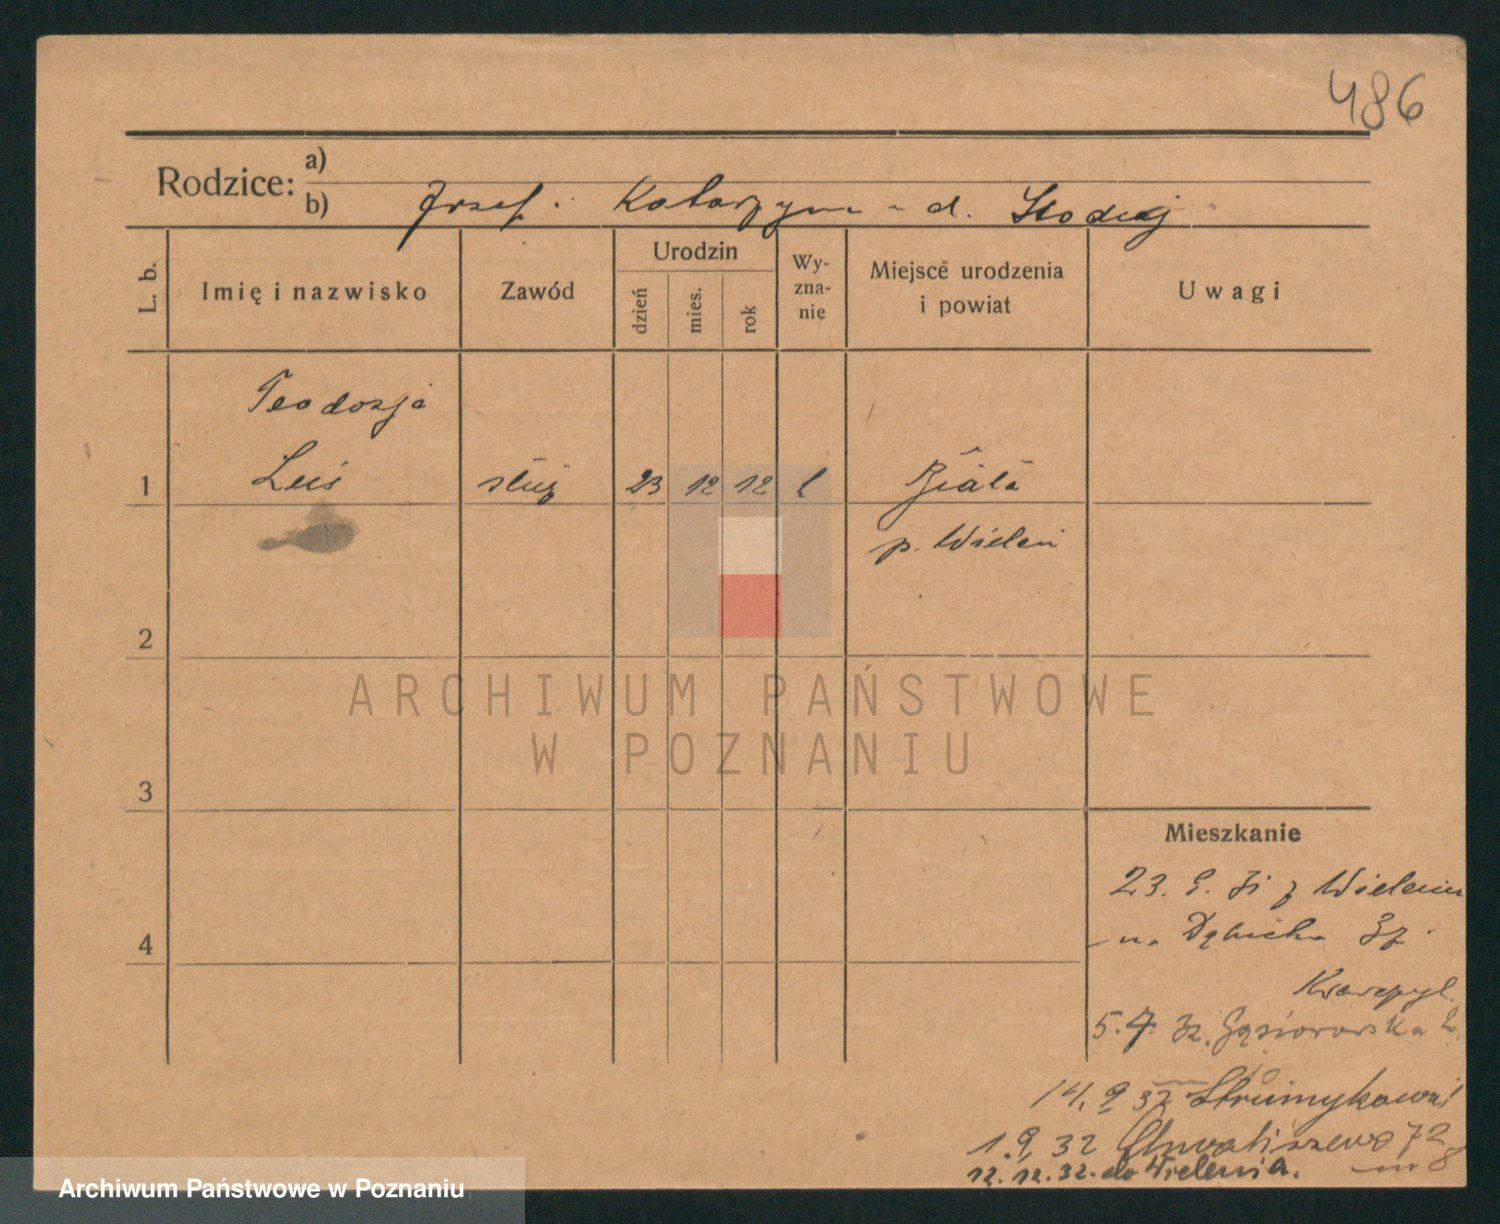 486
Rodzice:
a)
b) Józef. Katarzyna - d. Słodzej
L. b.
Imię i nazwisko
Zawód
Urodzin
dzień
mies.
rok
Wy-
zna-
nie
Miejsce urodzenia
i powiat
Uwagi
Teodozja
1 Leis służ 23 12 12 k Biała
p. Wieleń
2
ARCHIWUM PAŃSTWOWE
W POZNANIU
3
Mieszkanie
23. 9. 31 z Wielenia
na Dębicka
4
5. 7. 32. Gąsiorowska 2
14. 9 32 Strumykowa
1. 9. 32 Chwaliszewo 72
m 8
12. 12. 32. do Wielenia.
Archiwum Państwowe w Poznaniu